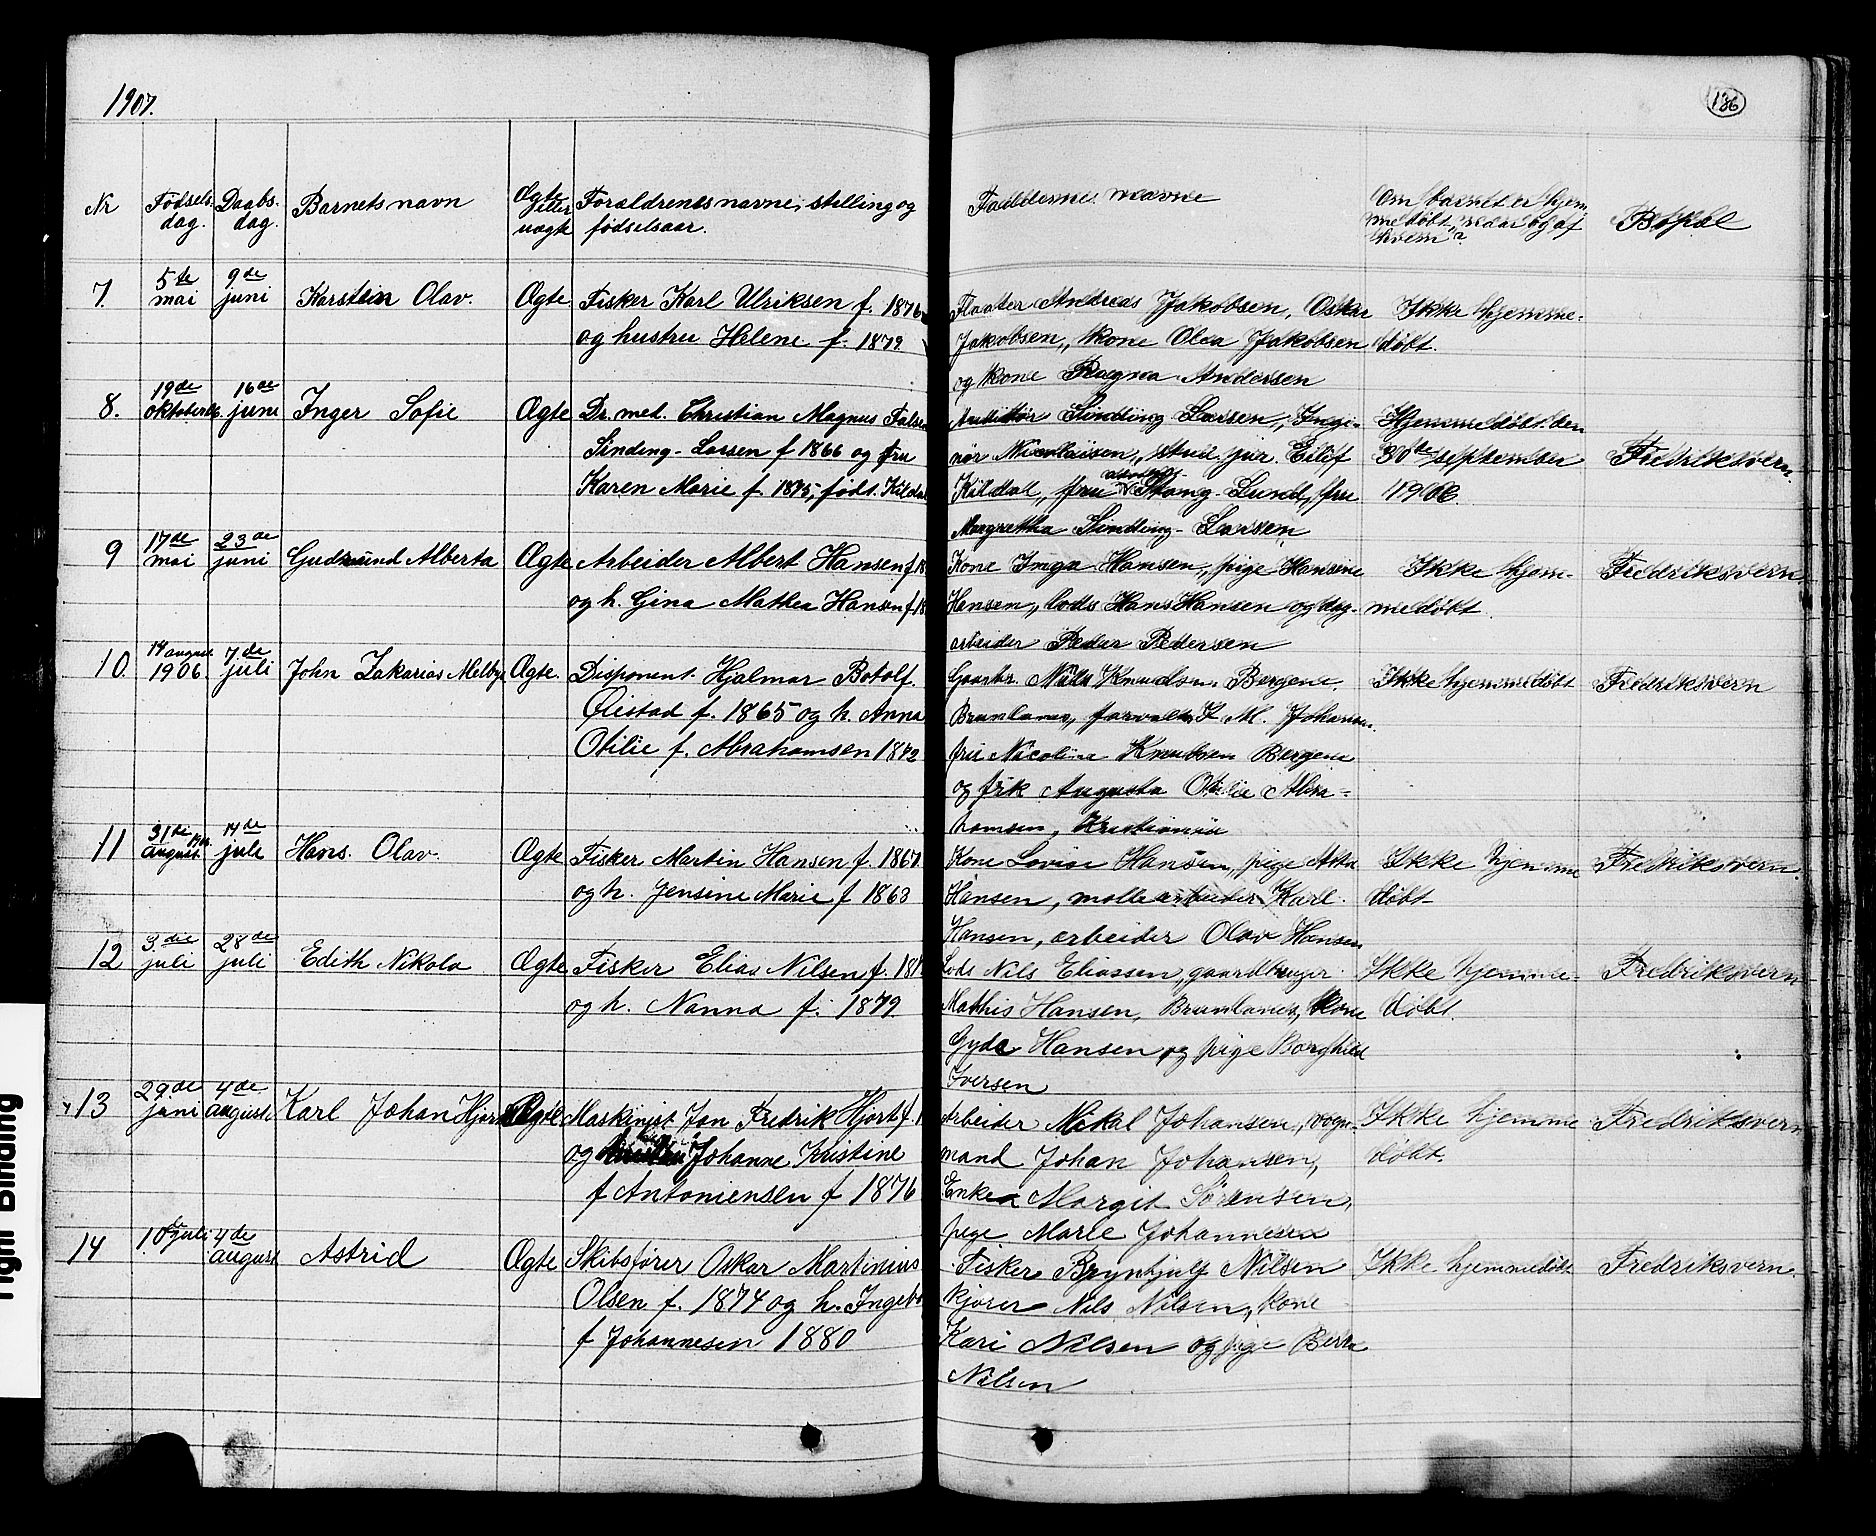 1907.
136
Nr Fødsels- dag. Daabs- dag. Barnets navn Ægte eller uægte Forældrenes navne, stilling og fødselsaar. Faddernes navne Om barnet er hjem- medøbt, naar og af hvem? Bopæl
7. 5te mai 9de juni Karstein Olav. Ægte Fisker Karl Ulriksen f. 1876 Andreas Jakobsen, Oskar Ikke hjemme-
og hustru Helene f. 1879 Jakobsen, kone Olea Jakobsen døbt.
og kone Ragna Andersen
8. 19de oktober 16de juni Inger Sofie Ægte Dr. med. Christian Magnus Falsen Sinding Larsen, Inge- Hjemmedøbt den
Sinding-Larsen f 1866 og fru niør Nicolaisen, stud. jur. Eilif 30te september Fredriksvern.
Karen Marie f. 1875, født Kildal Kildal, fru Stang-Lund, fru 1906
Margretha Sinding-Larsen
9 17de mai 23de juni Gudmund Alberta Ægte Arbeider Albert Hansen f. 18 Kone Inga Hansen, pige Hansine Ikke hjem- Fredriksvern
og h. Gina Mathea Hansen f. 18 Hansen, lods Hans Hansen og dag- medøbt.
arbeider Peder Pedersen
10. 14 august 1906 7de juli John Zakarias Melby Ægte. Disponent Hjalmar Botolf. Gaardbr. Nils Knudsen Bergene, Ikke hjemmedøbt Fredriksvern
Øiestad f. 1865 og h. Anna Brunlanes, forvalter J. M. Johansen
Otilie f. Abrahamsen 1872 fru Nicoline Knudsen Bergene
og frk Augusta Otilie Abra-
hamsen, Kristiania
11 31de august 1906 14de juli Hans Olav. Ægte Fisker Martin Hansen f. 1867 Kone Lovise Hansen, pige Asta Ikke hjemme Fredriksvern.
og h. Jensine Marie f 1863 Hansen, møllearbeider Karl døbt
Hansen, arbeider Olav Hansen
12 3die juli 28de juli Edith Nikola Ægte Fisker Elias Nilsen f. 18 Lods Nils Eliassen, gaardbruger Ikke hjemme- Fredriksvern
og h. Nanna f. 1879 Mathis Hansen, Brunlanes, kone døbt.
Gyda Hansen og pige Borghild
Iversen
13 29de juni 4de august Karl Johan Hjort Ægte Maskinist Jon Fredrik Hjort f. 1 Arbeider Mikal Johansen, vogn- Ikke hjemme Fredriksvern
og Johanne Kristine mand Johan Johansen, døbt.
f Antoniensen f 1876 Enke Margit Sørensen,
pige Marie Johannesen
14 10de juli 4de august Astrid Ægte Skibsfører Oskar Martinius Fisker Brynhjulf Nilsen Ikke hjemmedøbt Fredriksvern.
Olsen f. 1874 og h. Ingeb kjører Nils Nilsen, kone
f Johannesen 1880 Kari Nilsen og pige Berta
Nilsen
Tight Binding